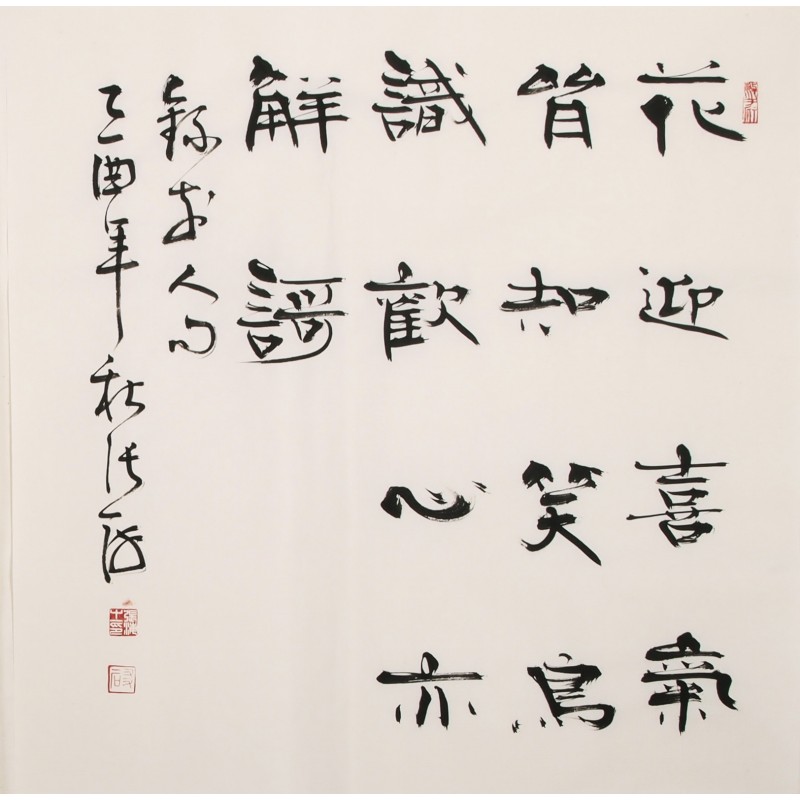 花迎喜氣
皆知笑鳥
識歡心亦
解謌
錄前人句
乙酉年秋張海